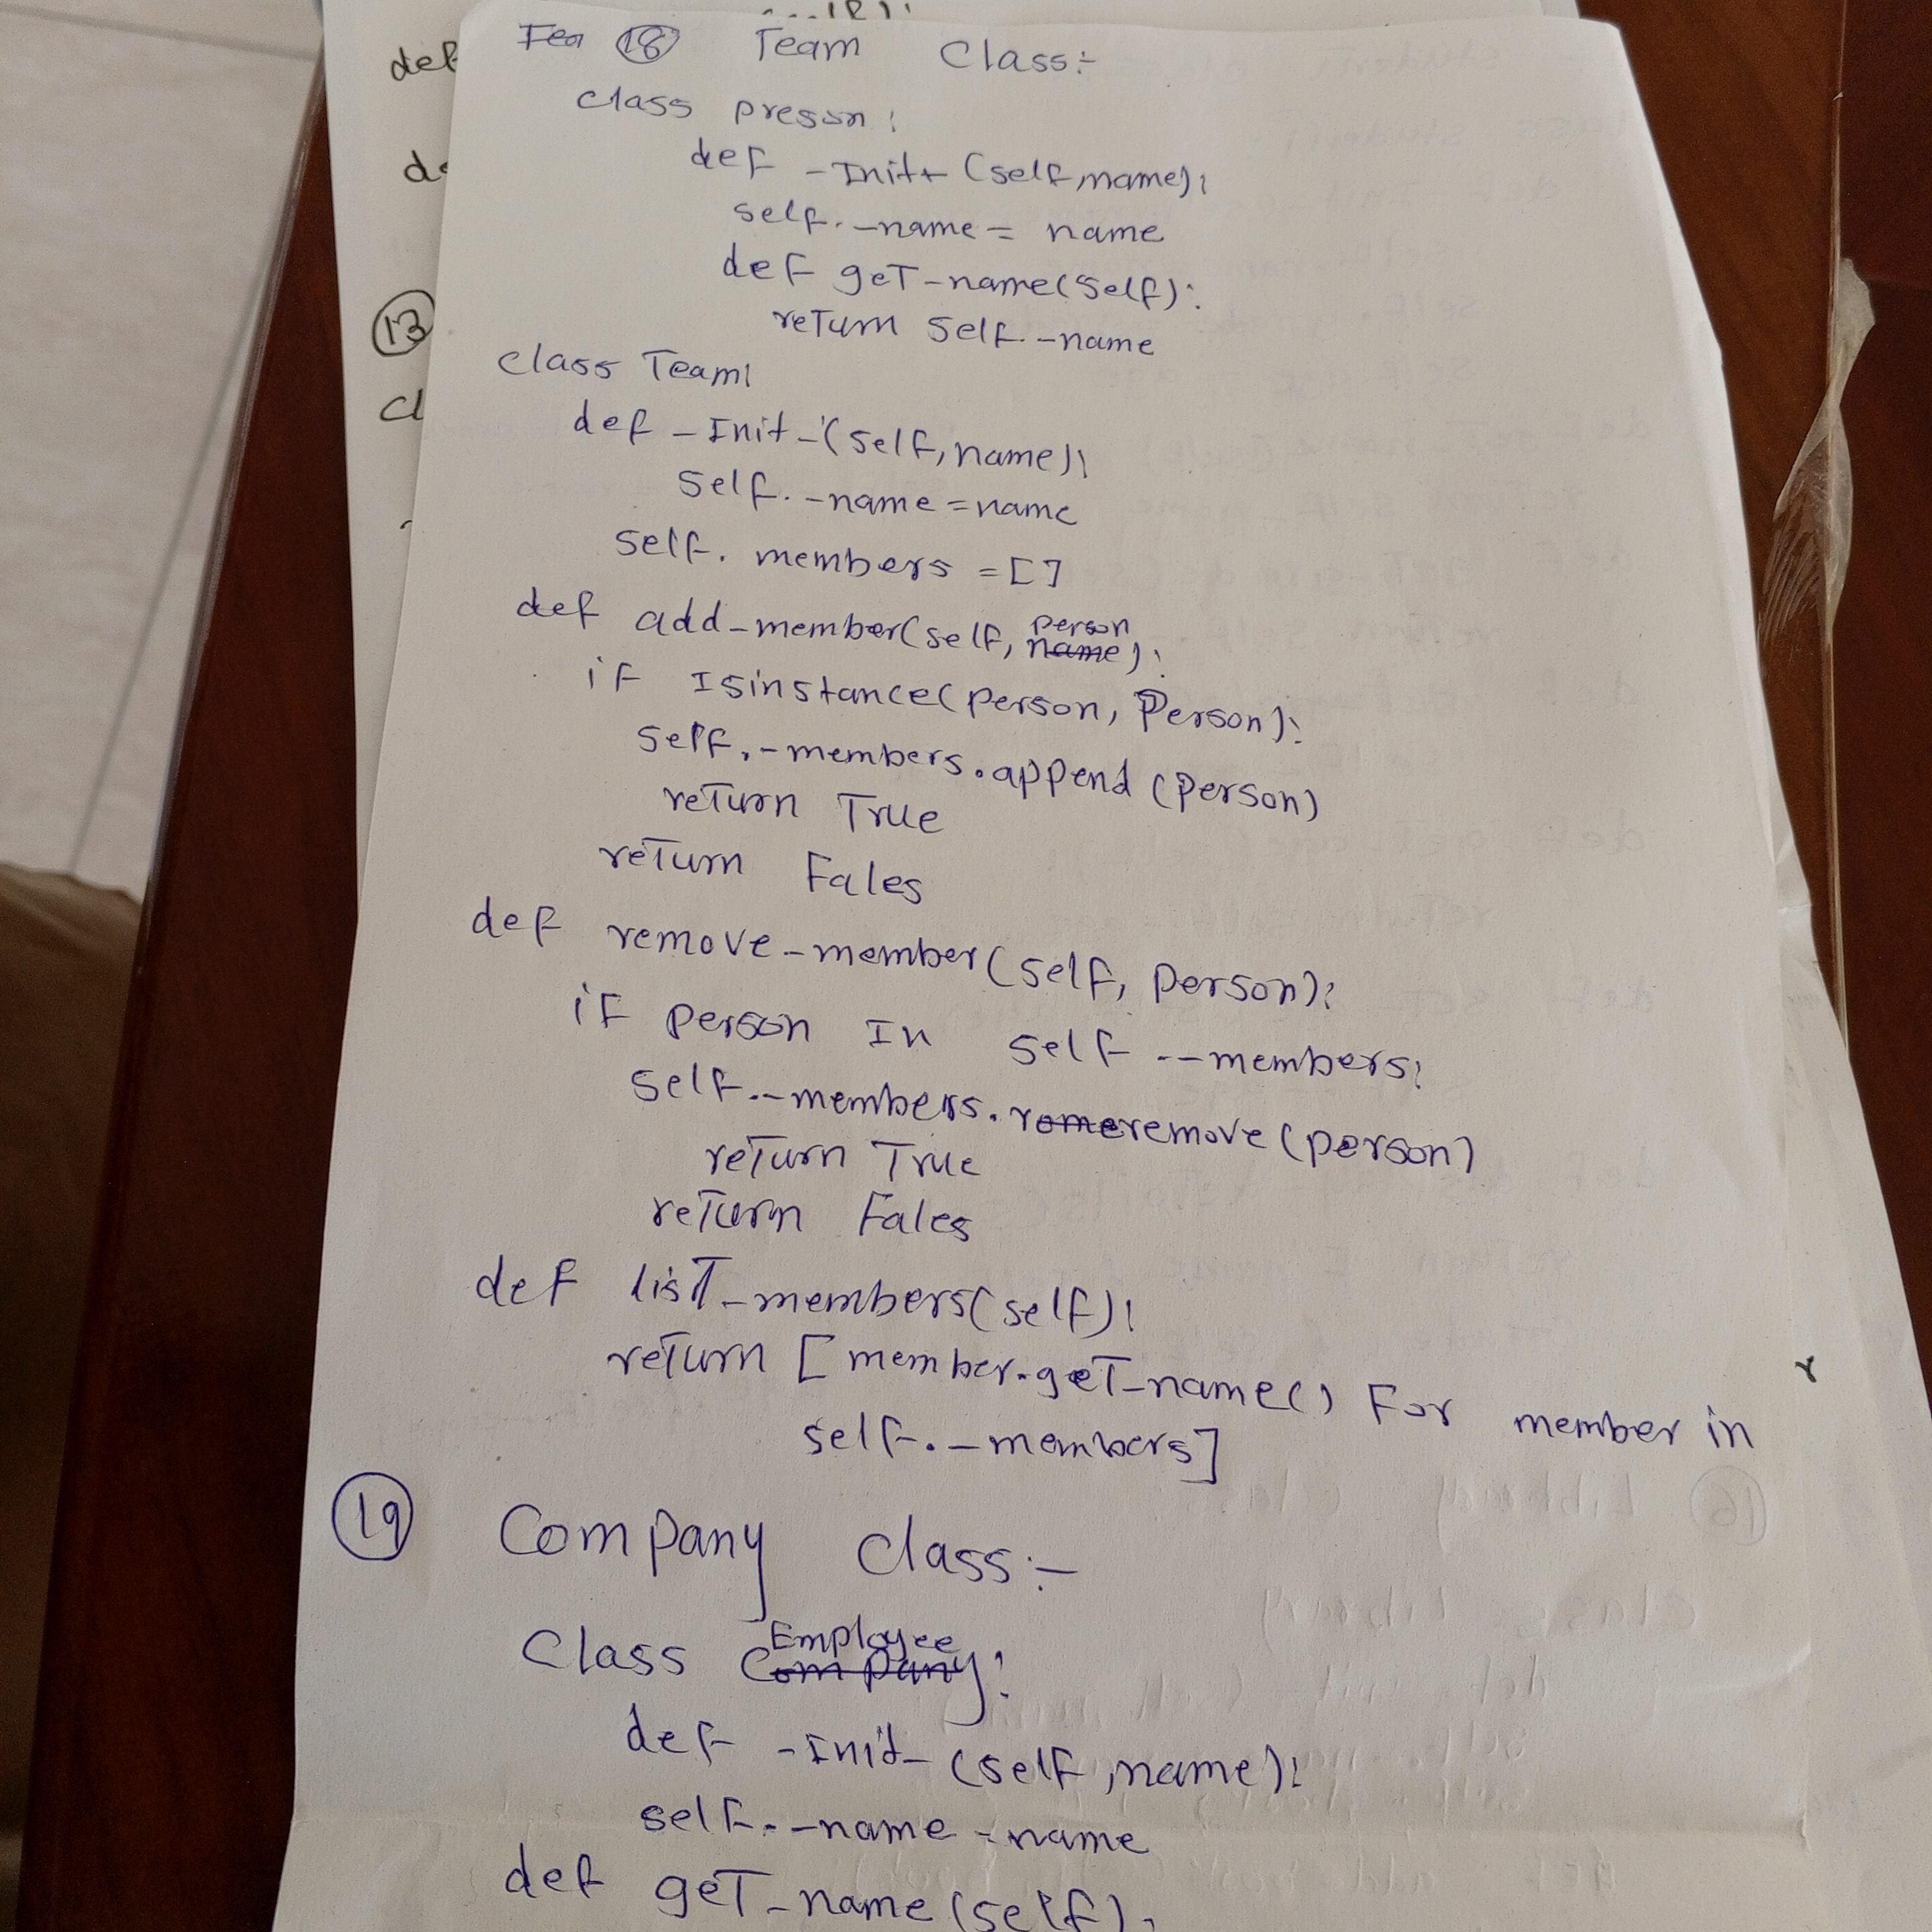 def
de
13
cl
18 Team Class:-
class preson:
def -Init+ (self,name):
self.-name = name
def geT-name(self):
reTurn self.-name
class Team:
def -Init-(self,name):
self.-name =name
self. members =[]
def add-member(self, person name):
if Isinstance(person, Person):
self.-members.append (Person)
reTurn True
reTurn Fales
def remove-member(self, Person):
if person In self .-members:
self.-members.romeremove(person)
reTurn True
reTurn Fales
def lisT-members(self):
reTurn [member.geT-name() For member in
self.-members]
19 Company Class:-
Class Employee Company:
def -Init- (self,name):
self.-name =name
def geT-name(self):